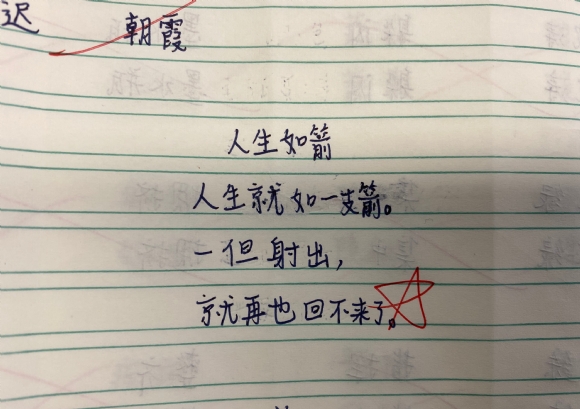 迟 朝霞
人生如箭
人生就如一支箭。
一但射出，
就再也回不来了。